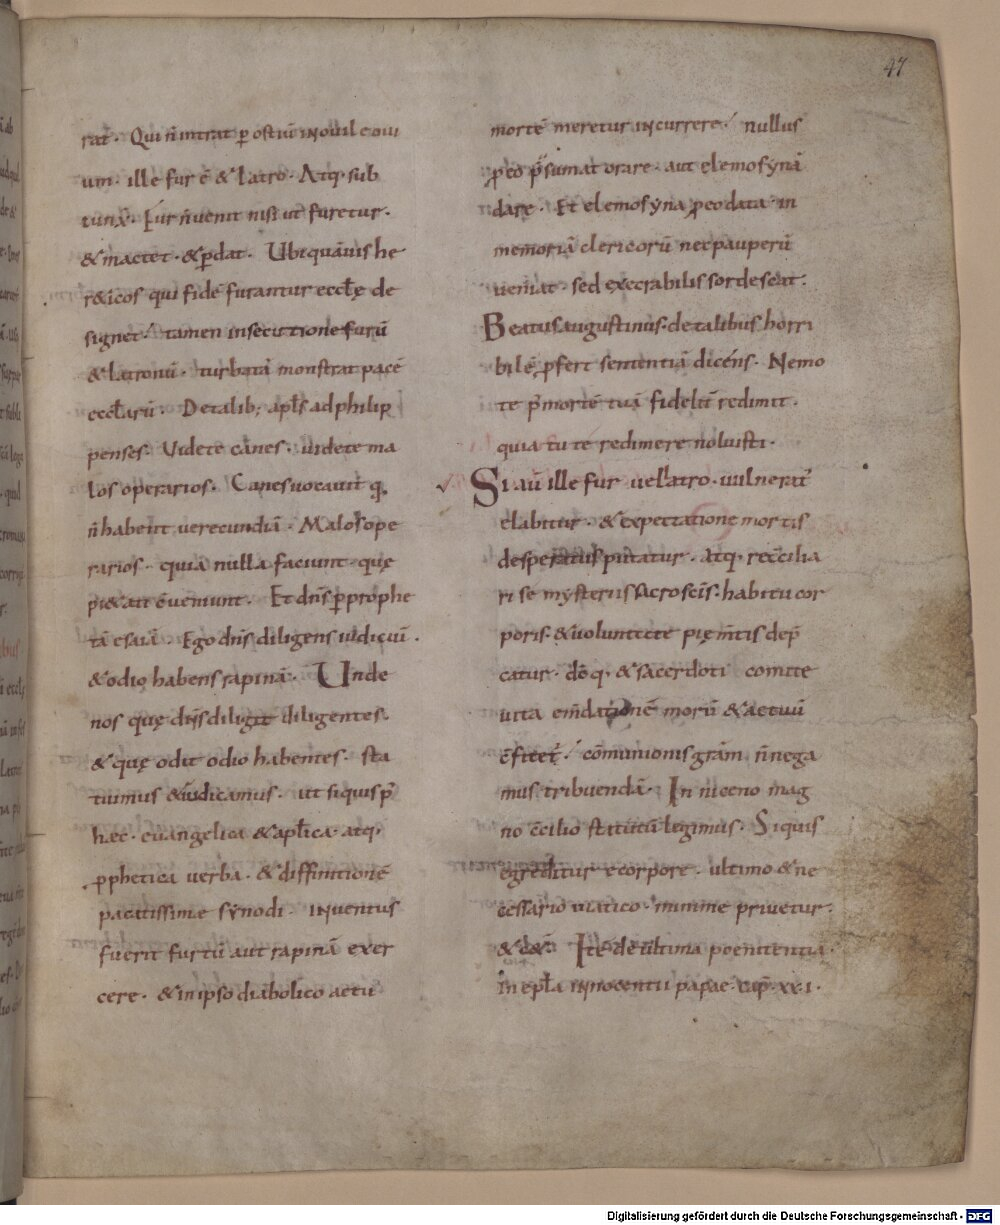 47
rat. Qui n̄ intrat ꝑ ostiū in ovile ovi
um. ille fur ē & latro. Atq; sub
iunx̄. Fur n̄ venit nisi ut furetur.
& mactet. & ꝑdat. Ubi quāvis he
r&icos qui fidē furantur eccłę de
signet. tamen insecutione furū
& latronū. turbatā monstrat pacē
eccłarū. De talib; apłs ad philip
penses. Videte canes. videte ma
los operarios. Canes vocavit q;
n̄ habent verecundiā. Malos ope
rarios. quia nulla faciunt quę
pi&ati c̄veniunt. Et dn̄s ꝑ prophe
tā esaiā. Ego dn̄s diligens iudiciū.
& odio habens rapinā. Unde
nos quę dn̄s diligit diligentes.
& quę odit odio habentes. sta
tuimus & iudicamus. ut siquis p̄
hęc. euangelica & apłica. atq;
ꝓphetica verba. & diffinitionē
pacatissimę synodi. inventus
fuerit furtū aut rapinā exer
cere. & in ipso diabolico actu
mortē meretur incurrere. nullus
ꝓ eo p̄sumat orare. aut elemosynā
dare. Et elemosyna ꝓ eo data. in
memoriā clericorū nec pauperū
veniat. sed execrabilis sordescat.
Beatus augustinus. de talibus horri
bilē ꝓfert sententiā dicens. Nemo
te p̄ mortē tuā fideliū redimit.
quia tu te redimere noluisti.
Si aū ille fur vel latro. vulnerat᷒
elabitur. & expectatione mortis
desperatus putatur. atq; rec̄cilia
ri se mysteriis sacrosc̄is. habitu cor
poris. & voluntate pię m̄tis dep̄
catur. dōq; & sacerdoti comite
vita em̄dationē morū & actuū
c̄fitet᷒. cōmunionis grām n̄ nega
mus tribuendā. In niceno mag
no c̄cilio statutū legimus. Siquis
egreditur e corpore. ultimo & ne
cessario viatico. minime privetur.
& c&̄. Itē de ultima poenitentia
in epła innocentii papae. cap̄. xxi.
Digitalisierung gefördert durch die Deutsche Forschungsgemeinschaft - DFG